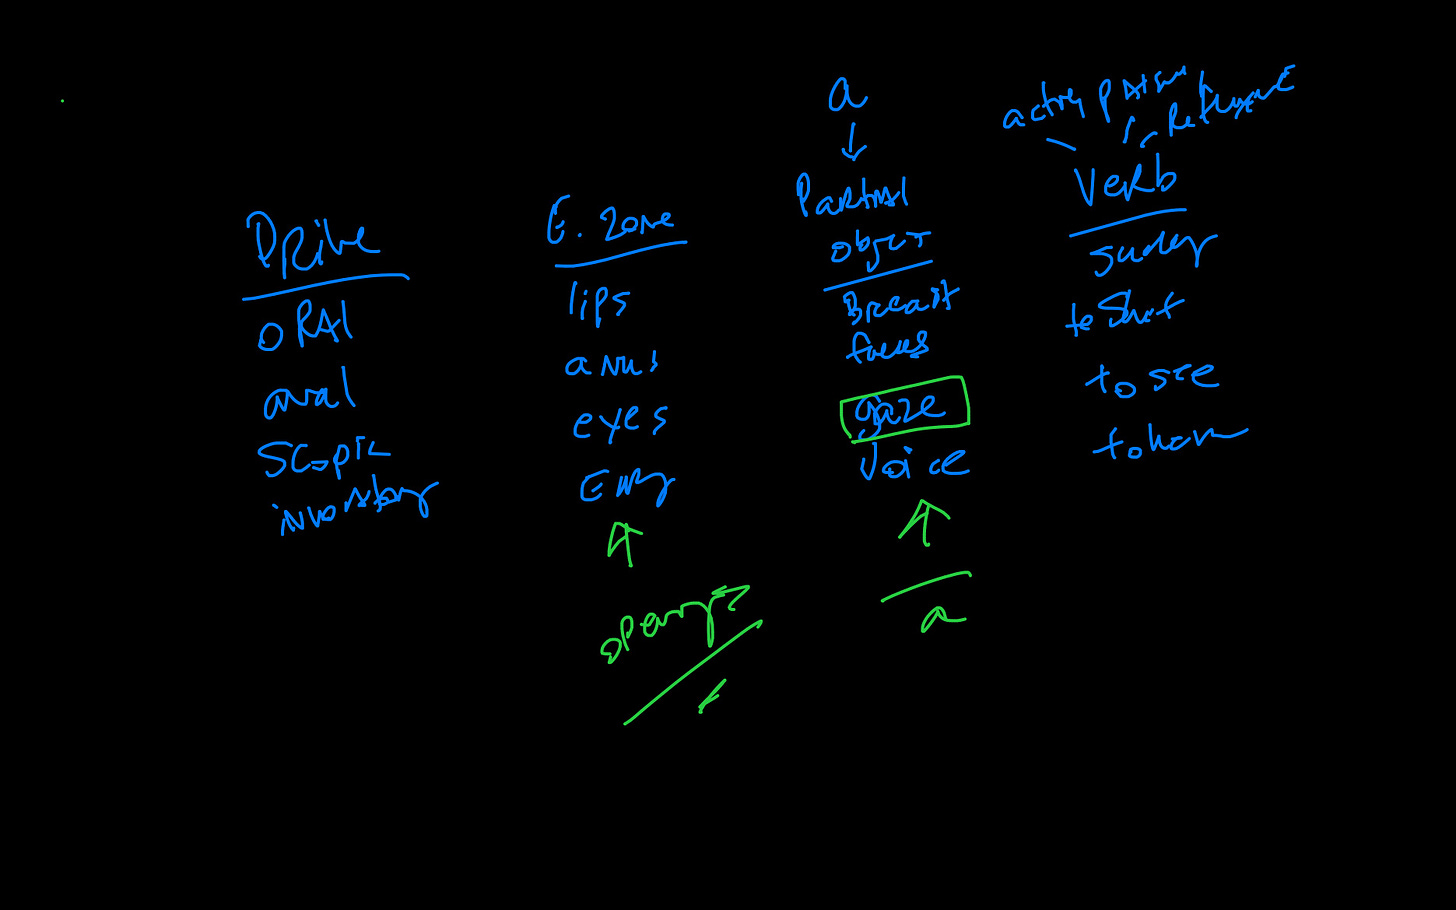 a
active passive Reflexive
Partial object
Verb
Drive
E. Zone
oral
lips
Breast
anal
anus
feces
to shit
Scopic
eyes
gaze
to see
invocatory
Ear
voice
to hear
openings
a